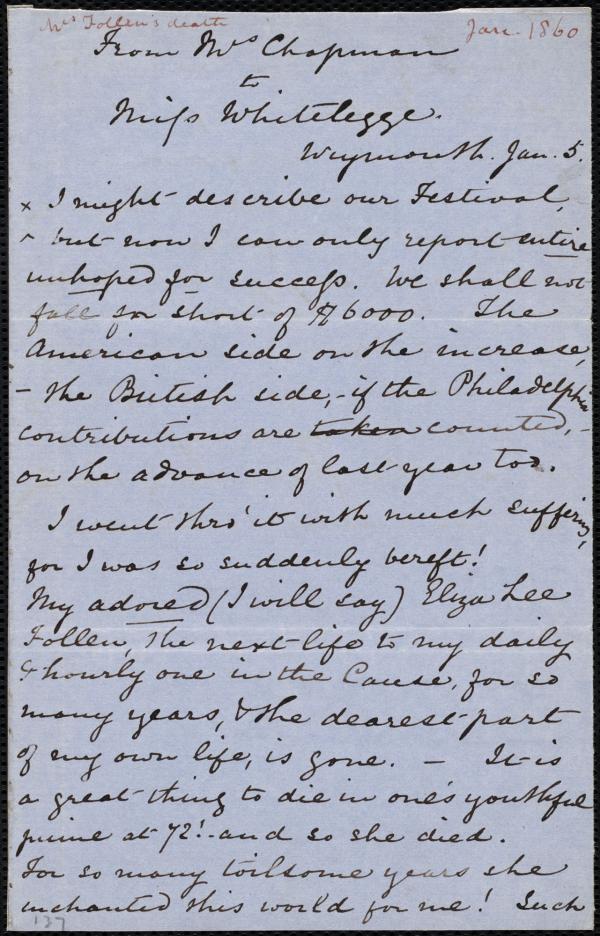 Mrs Follen's death
Jan. 1860
From Mrs Chapman
to
Miss Whitelegge.
Weymouth. Jan. 5.
x I might describe our Festival,
^ but now I can only report entire
unhoped for success. We shall not
fall far short of $6000. The
American side on the increase,
- the British side, - if the Philadelphia
contributions are taken counted, -
on the advance of last year too.
I went thro' it with much suffering,
for I was so suddenly bereft!
My adored (I will say) Eliza Lee
Follen, the next life to my daily
& hourly one in the Cause, for so
many years, & the dearest part
of my own life, is gone. — It is
a great thing to die in one's youthful
prime at 72! - and so she died.
For so many toilsome years she
enchanted this world for me! Such
137